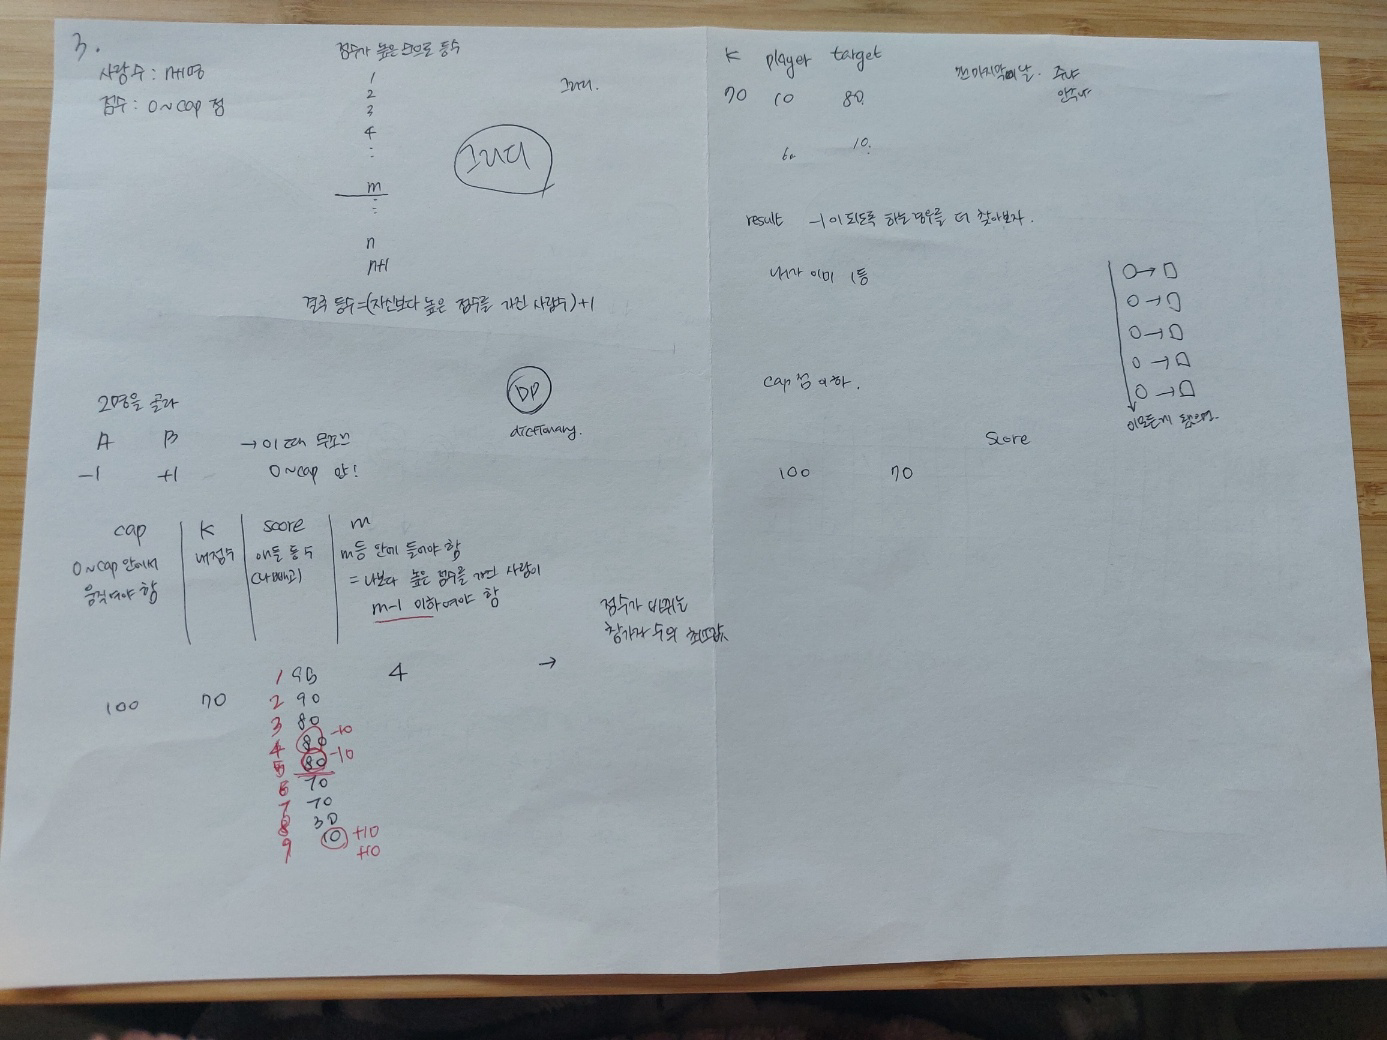 3.
사람수 : n+1명
점수 : 0~cap 점
점수가 높은 순으로 등수
1
2
3
4
:
m
:
n
n+1
그리디.
그리디
결국 등수=(자신보다 높은 점수를 가진 사람수)+1
2명을 골라
A B → 이 때 무조건
-1 +1 0~cap 안!
DP
dictionary.
cap K score m
0~cap 안에서
움직여야 함
내점수
애들 점수
(나 빼고)
m등 안에 들어야 함
= 나보다 높은 점수를 가진 사람이
m-1 이하여야 함
점수가 바뀌는
참가자 수의 최솟값
→
100 70 4
1 95
2 90
3 80
4 80 -10
5 80 -10
6 70
7 70
8 30
9 10 +10
+10
K player target
70 10 80
60 10
주냐
안주냐
result -1이 되도록 하는 경우를 더 찾아보자.
내가 이미 1등
○→□
○→□
○→□
○→□
○→□
cap 점 이하.
score
100 70